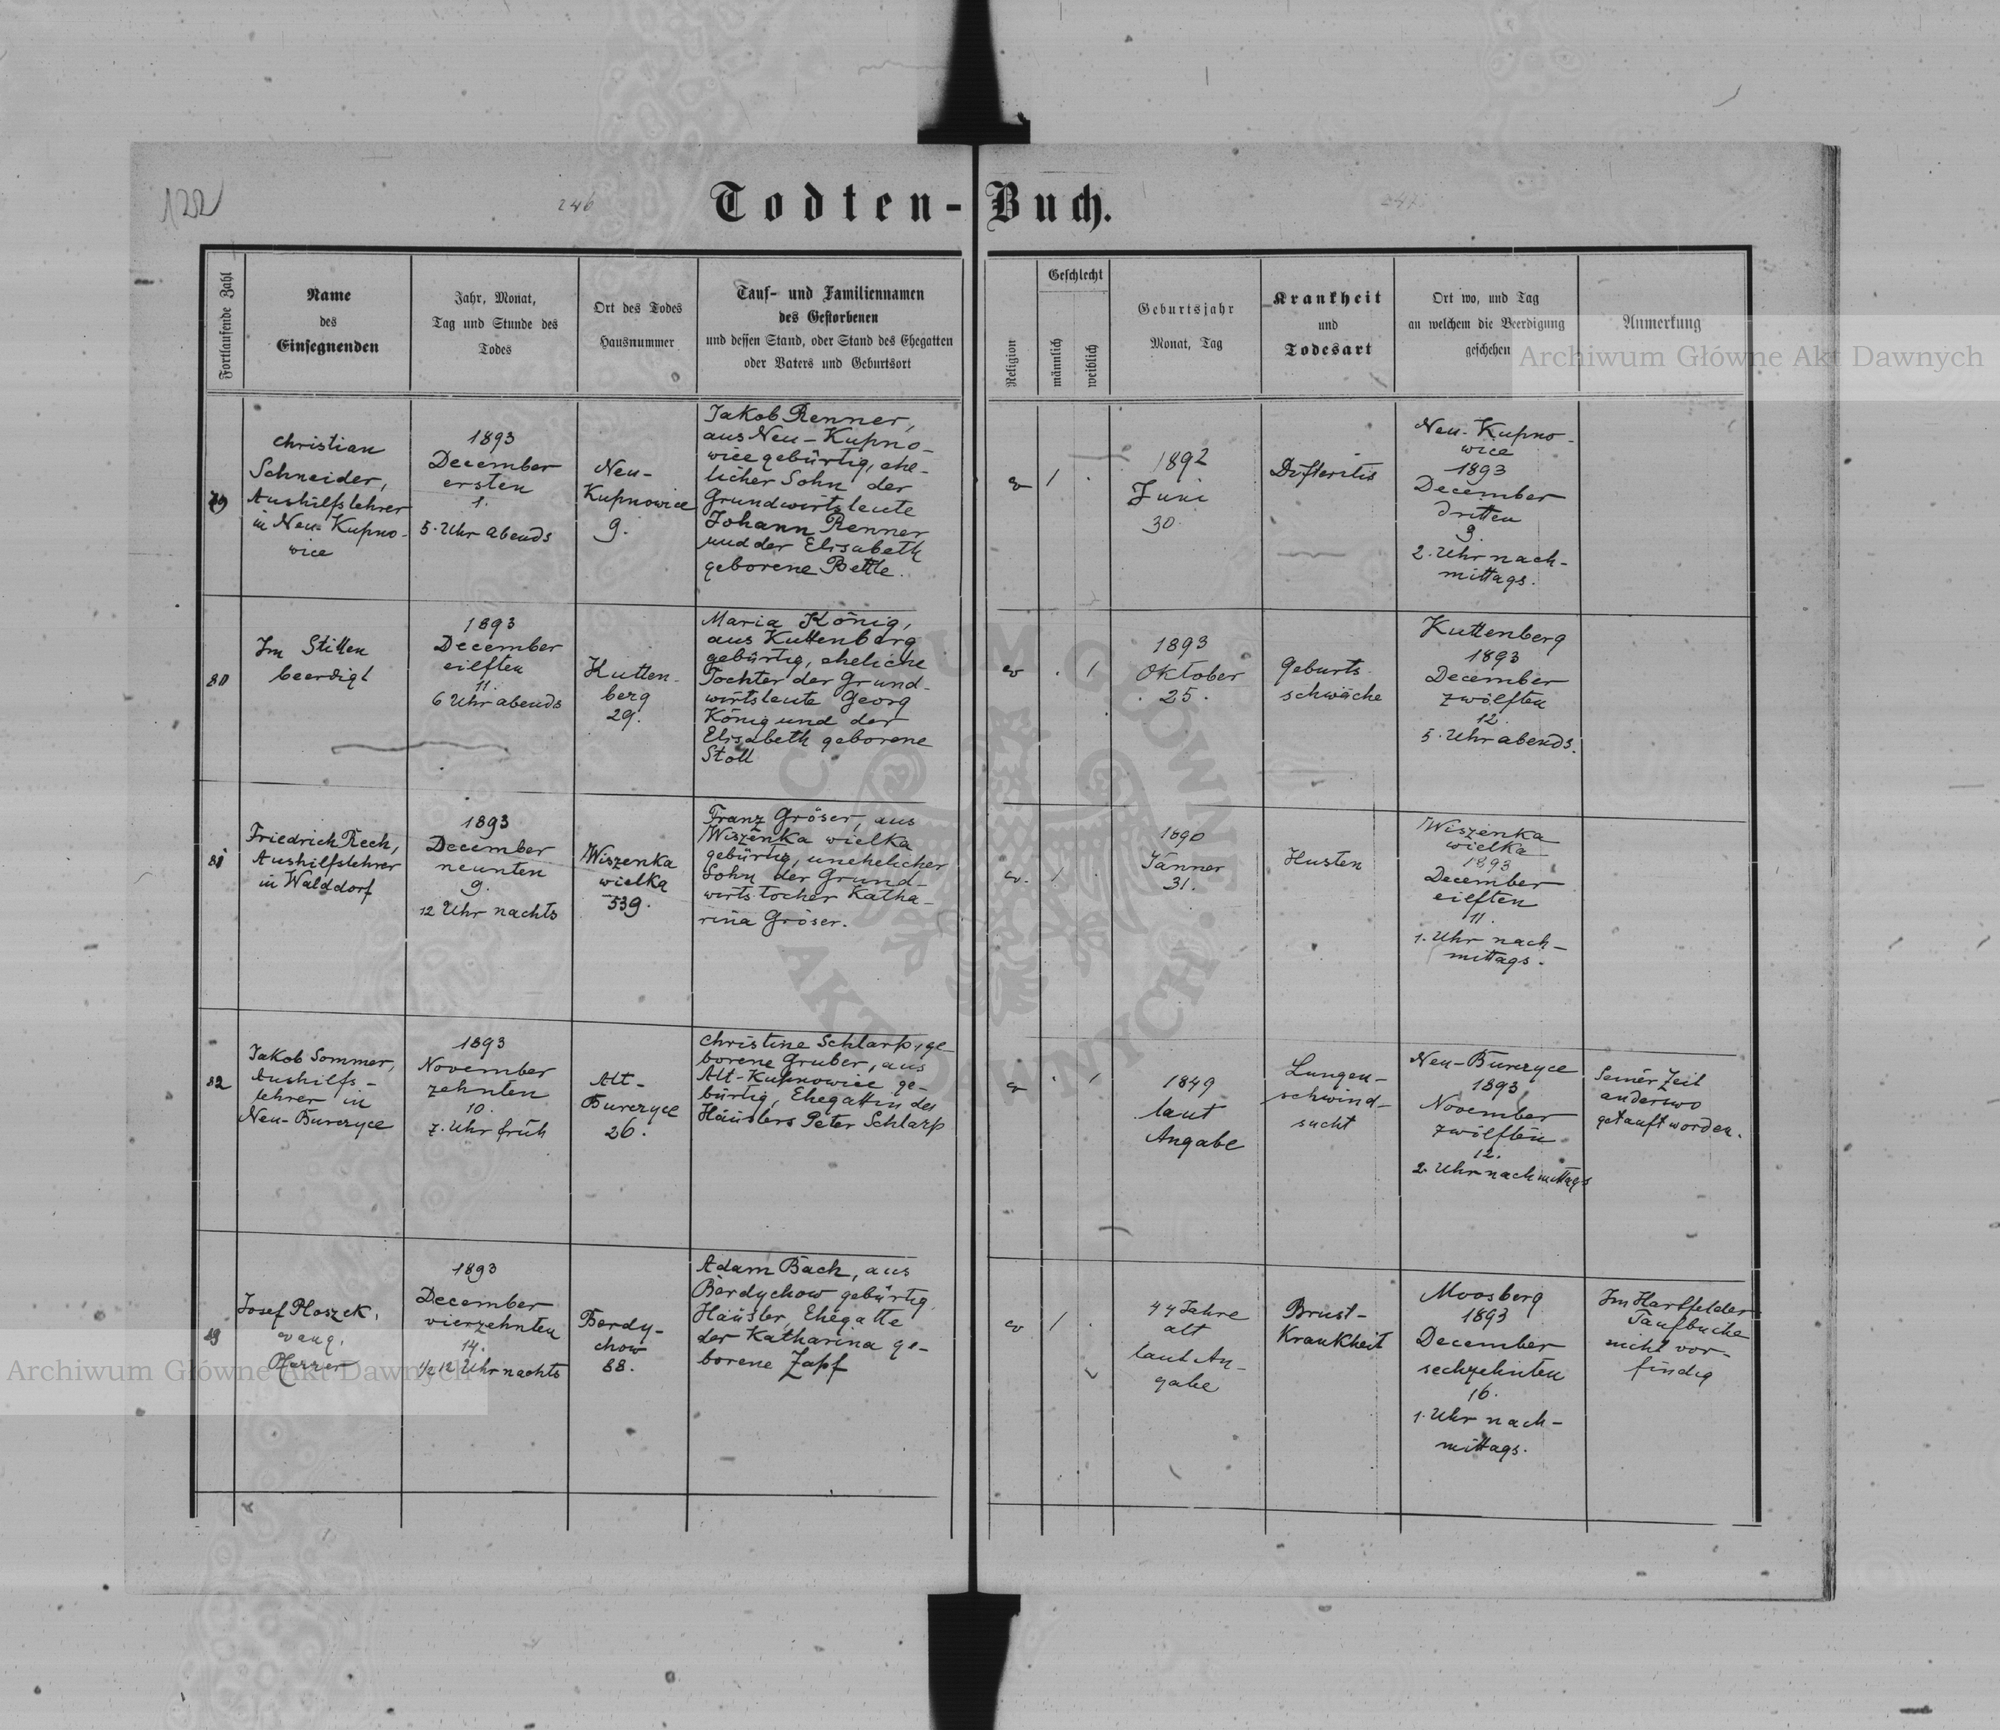 122
246
Todten-Buch.
Fortlaufende Zahl
Name
des
Einsegnenden
Jahr, Monat,
Tag und Stunde des
Todes
Ort des Todes
Hausnummer
Tauf- und Familiennamen
des Gestorbenen
und dessen Stand, oder Stand des Ehegatten
oder Vaters und Geburtsort
Religion
Geschlecht
männlich
weiblich
Geburtsjahr
Monat, Tag
Krankheit
und
Todesart
Ort wo, und Tag
an welchem die Beerdigung
geschehen
Anmerkung
79
Christian
Schneider,
Aushilfslehrer
in Neu-Kupno-
wice
1893
December
ersten
1.
5. Uhr abends
Neu-
Kupnowice
9.
Jakob Renner,
aus Neu-Kupno-
wice gebürtig, ehe-
licher Sohn der
Grundwirtsleute
Johann Renner
und der Elisabeth
geborene Bettle.
ev
/
.
1892
Juni
30.
Difteritis
Neu-Kupno-
wice
1893
December
dritten
3.
2. Uhr nach-
mittags.
80
Im Stillen
beerdigt
1893
December
eilften
11.
6 Uhr abends
Kutten-
berg
29.
Maria König,
aus Kuttenberg
gebürtig, eheliche
Tochter der Grund-
wirtsleute Georg
König und der
Elisabeth geborene
Stoll
ev
.
/
1893
Oktober
25.
Geburts-
schwäche
Kuttenberg
1893
December
zwölften
12.
5. Uhr abends.
81
Friedrich Rech,
Aushilfslehrer
in Walddorf
1893
December
neunten
9.
12 Uhr nachts
Wiszenka
wielka
539.
Franz Gröser, aus
Wiszenka wielka
gebürtig, unehelicher
Sohn der Grund-
wirtstocher Katha-
rina Gröser.
ev.
/
.
1890
Jänner
31.
Husten
Wiszenka
wielka
1893
December
eilften
11.
1. Uhr nach-
mittags.
82
Jakob Sommer,
Aushilfs-
lehrer in
Neu-Burczyce
1893
November
zehnten
10.
7. Uhr früh
Alt-
Burczyce
26.
Christine Schlarp, ge-
borene Gruber, aus
Alt-Kupnowice ge-
bürtig, Ehegattin des
Häuslers Peter Schlarp
ev
.
/
1849
laut
Angabe
Lungen-
schwind-
sucht
Neu-Burczyce
1893
November
zwölften
12.
2. Uhr nachmittags
Seiner Zeit
anderswo
getauft worden.
83
Josef Ploszek,
evang.
Pfarrer
1893
December
vierzehnten
14.
1/2 12 Uhr nachts
Berdy-
chow
88.
Adam Bach, aus
Berdychow gebürtig,
Häusler, Ehegatte
der Katharina ge-
borene Zapf
ev
/
.
44 Jahre
alt
laut An-
gabe
Brust-
Krankheit
Moosberg
1893
December
sechzehnten
16.
1. Uhr nach-
mittags.
Im Hartfelder
Taufbuche
nicht vor-
findig
Archiwum Główne Akt Dawnych
Archiwum Główne Akt Dawnych